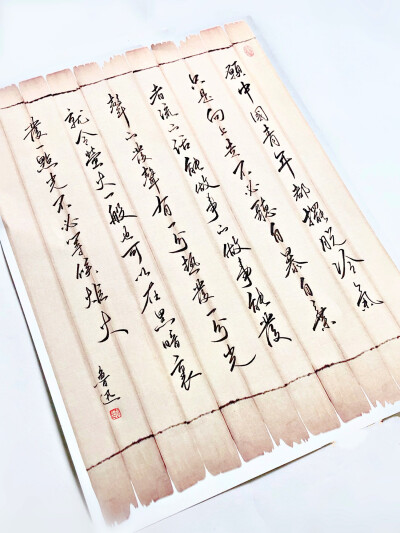 願中国青年都擺脱冷氣
只是向上走不必聽自暴自棄
者流的话能做事的做事能發
聲的發聲有一分熱發一分光
就令螢火一般也可以在黑暗裏
發一點光不必等候炬火
魯迅